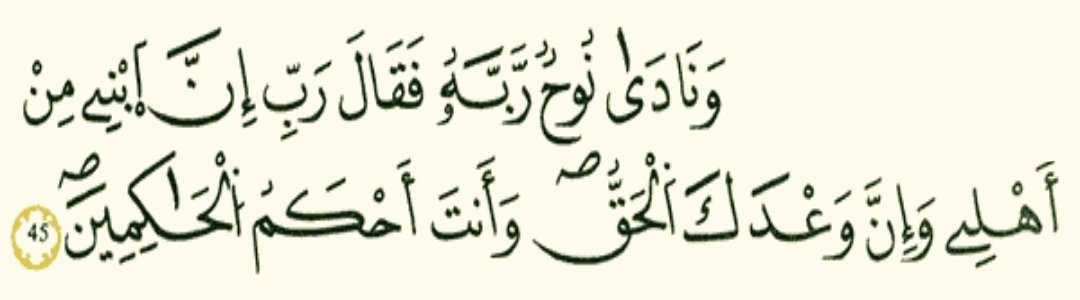 وَنَادَىٰ نُوحٌ رَّبَّهُۥ فَقَالَ رَبِّ إِنَّ اَ۪بْنِے مِنْ
أَهْلِے وَإِنَّ وَعْدَكَ اَ۬لْحَقُّۖ وَأَنتَ أَحْكَمُ اُ۬لْحَٰكِمِينَۖ 45